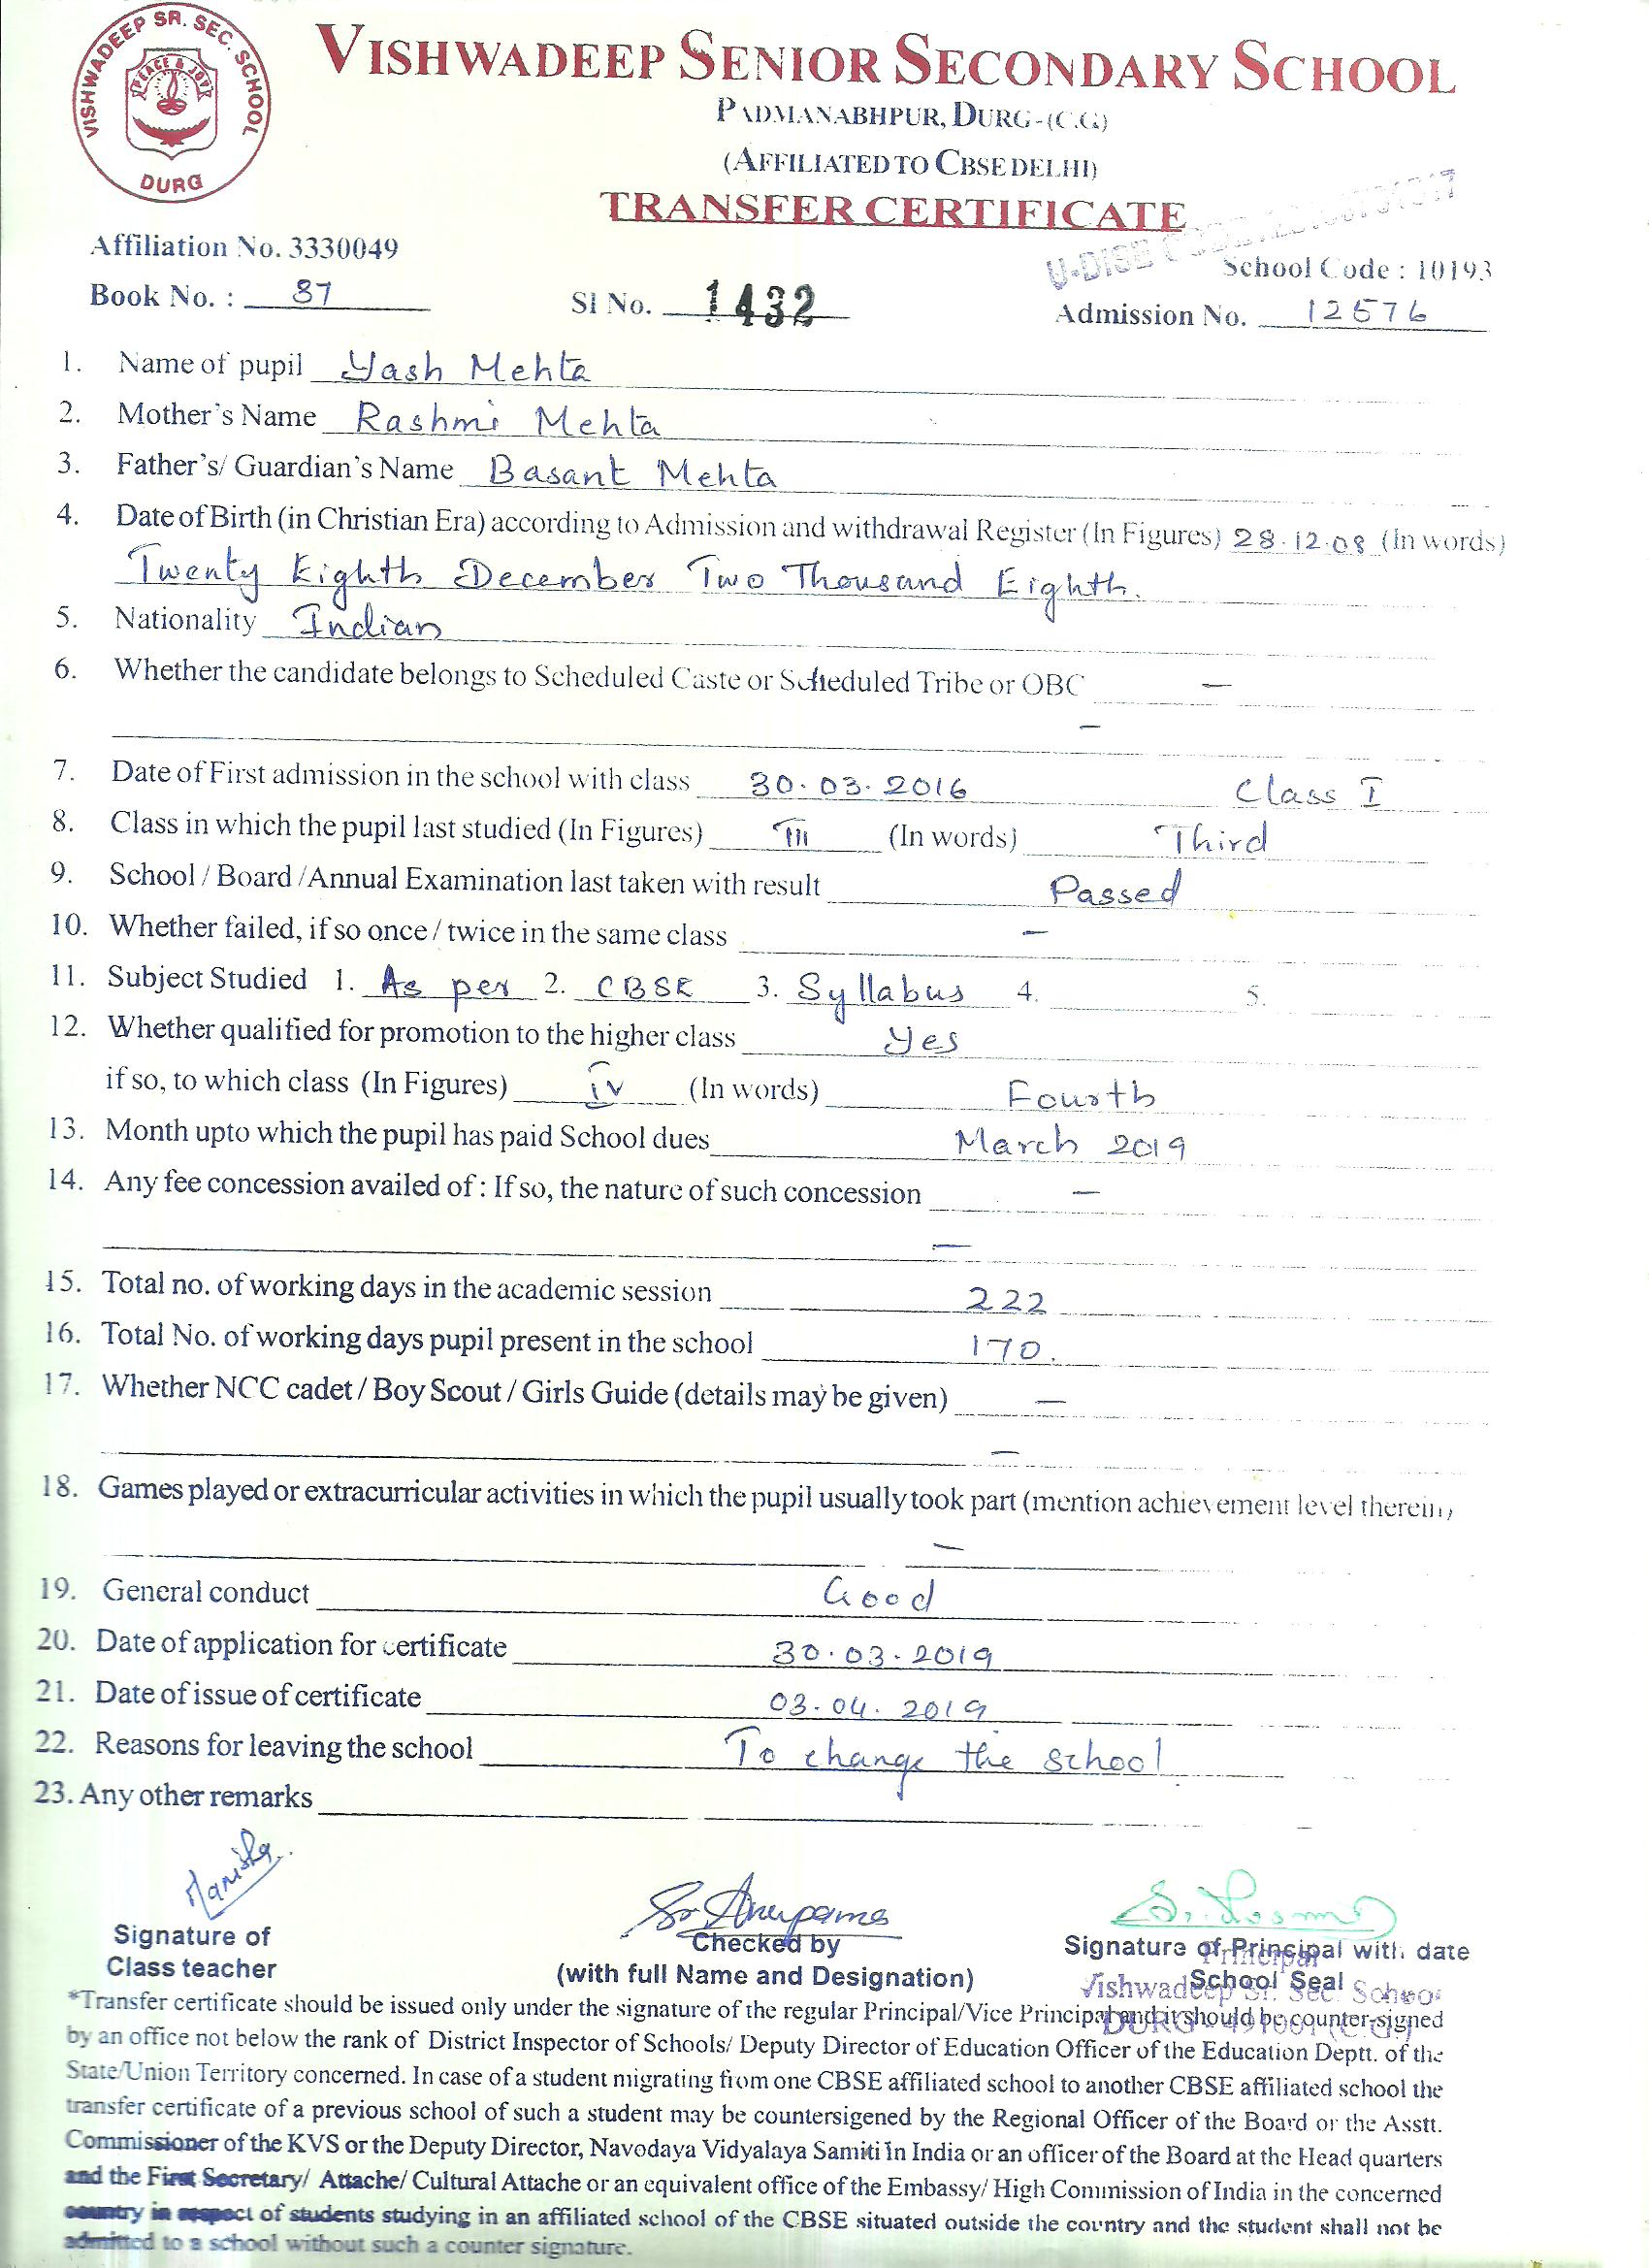 VISHWADEEP SR. SEC. SCHOOL
PEACE & JOY
DURG
VISHWADEEP SENIOR SECONDARY SCHOOL
PADMANABHPUR, DURG-(C.G)
(AFFILIATED TO CBSE DELHI)
TRANSFER CERTIFICATE
U-DISE
Affiliation No. 3330049
School Code : 10193
Book No. : 37
Sl No. 1432
Admission No. 12576
1. Name of pupil Yash Mehta
2. Mother's Name Rashmi Mehta
3. Father's/ Guardian's Name Basant Mehta
4. Date of Birth (in Christian Era) according to Admission and withdrawal Register (In Figures) 28.12.08 (In words)
Twenty Eighth December Two Thousand Eighth.
5. Nationality Indian
6. Whether the candidate belongs to Scheduled Caste or Scheduled Tribe or OBC —
—
7. Date of First admission in the school with class 30.03.2016 Class I
8. Class in which the pupil last studied (In Figures) III (In words) Third
9. School / Board /Annual Examination last taken with result Passed
10. Whether failed, if so once / twice in the same class —
11. Subject Studied 1. As per 2. CBSE 3. Syllabus 4. 5.
12. Whether qualified for promotion to the higher class Yes
if so, to which class (In Figures) iv (In words) Fourth
13. Month upto which the pupil has paid School dues March 2019
14. Any fee concession availed of : If so, the nature of such concession —
—
15. Total no. of working days in the academic session 222
16. Total No. of working days pupil present in the school 170.
17. Whether NCC cadet / Boy Scout / Girls Guide (details may be given) —
—
18. Games played or extracurricular activities in which the pupil usually took part (mention achievement level therein)
—
19. General conduct Good
20. Date of application for certificate 30.03.2019
21. Date of issue of certificate 03.04.2019
22. Reasons for leaving the school To change the school
23. Any other remarks
Manisha
Sr. Anupama
Signature of
Class teacher
Checked by
(with full Name and Designation)
Signature of Principal with date
School Seal
Principal
Vishwadeep Sr. Sec. School
DURG
*Transfer certificate should be issued only under the signature of the regular Principal/Vice Principal and it should be counter-signed
by an office not below the rank of District Inspector of Schools/ Deputy Director of Education Officer of the Education Deptt. of the
State/Union Territory concerned. In case of a student migrating from one CBSE affiliated school to another CBSE affiliated school the
transfer certificate of a previous school of such a student may be countersigened by the Regional Officer of the Board or the Asstt.
Commissioner of the KVS or the Deputy Director, Navodaya Vidyalaya Samiti in India or an officer of the Board at the Head quarters
and the First Secretary/ Attache/ Cultural Attache or an equivalent office of the Embassy/ High Commission of India in the concerned
country in respect of students studying in an affiliated school of the CBSE situated outside the country and the student shall not be
admitted to a school without such a counter signature.